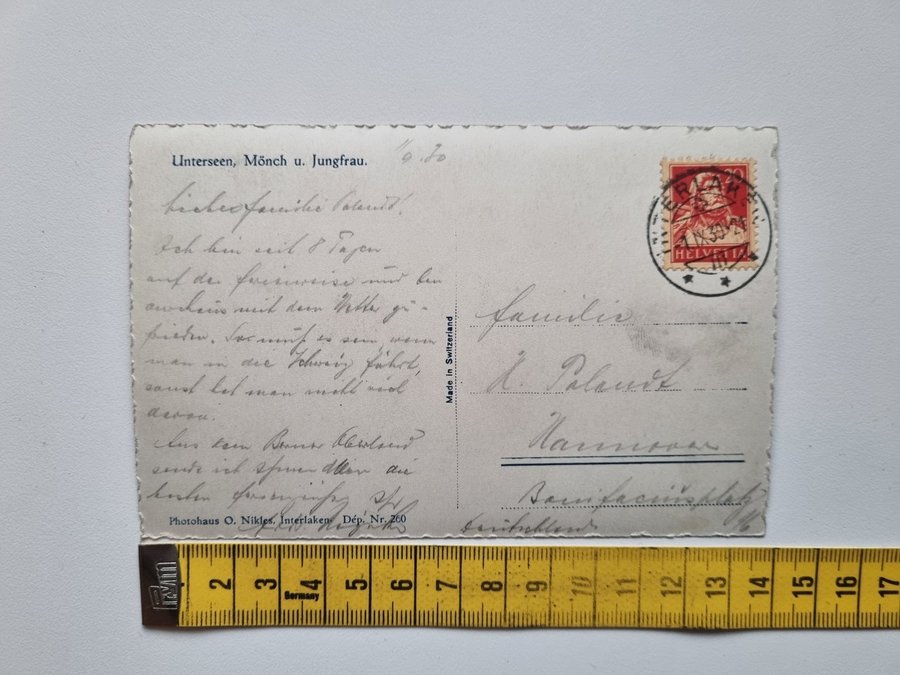 Unterseen, Mönch u. Jungfrau.
1/9.30
Liebe Familie Polandt!
Ich bin seit 8 Tagen
auf der Ferienreise und
mit dem Wetter zu-
frieden. So muß es sein wenn
man in die Schweiz fährt,
sonst hat man nicht viel
davon.
Aus dem Berner Oberland
sende ich Ihnen allen die
besten Feriengrüße
Photohaus O. Nikles, Interlaken Dép. Nr. 260
Made in Switzerland
20
HELVETIA
INTERLAKEN
1.IX.30
Familie
H. Polandt
Hannover
Bonifaciusplatz
Deutschland
2 3 4 5 6 7 8 9 10 11 12 13 14 15 16 17
Germany